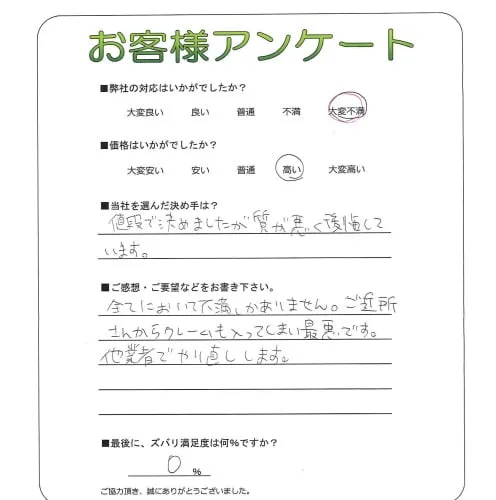 お客様アンケート
■弊社の対応はいかがでしたか？
大変良い 良い 普通 不満 大変不満
■価格はいかがでしたか？
大変安い 安い 普通 高い 大変高い
■当社を選んだ決め手は？
値段で決めましたが質が悪く後悔して
います。
■ご感想・ご要望などをお書き下さい。
全てにおいて不満しかありません。ご近所
さんからクレームも入ってしまい最悪です。
他業者でやり直しします。
■最後に、ズバリ満足度は何%ですか？
0 %
ご協力頂き、誠にありがとうございました。